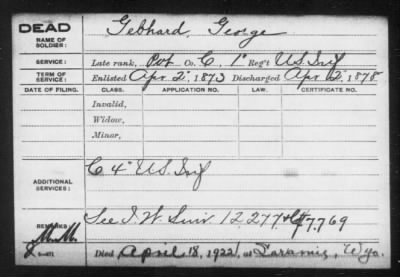 DEAD
NAME OF SOLDIER: Gebhard, George
SERVICE: Late rank, Pvt Co. C, 1" Reg't U.S. Inf
TERM OF SERVICE: Enlisted Apr. 2, 1873 Discharged Apr. 2, 1878
DATE OF FILING. CLASS. APPLICATION NO. LAW. CERTIFICATE NO.
Invalid,
Widow,
Minor,
ADDITIONAL SERVICES: C 4" U.S. Inf
REMARKS See I. W. 12277
Died April 18, 1922, at Laramie, Wyo.